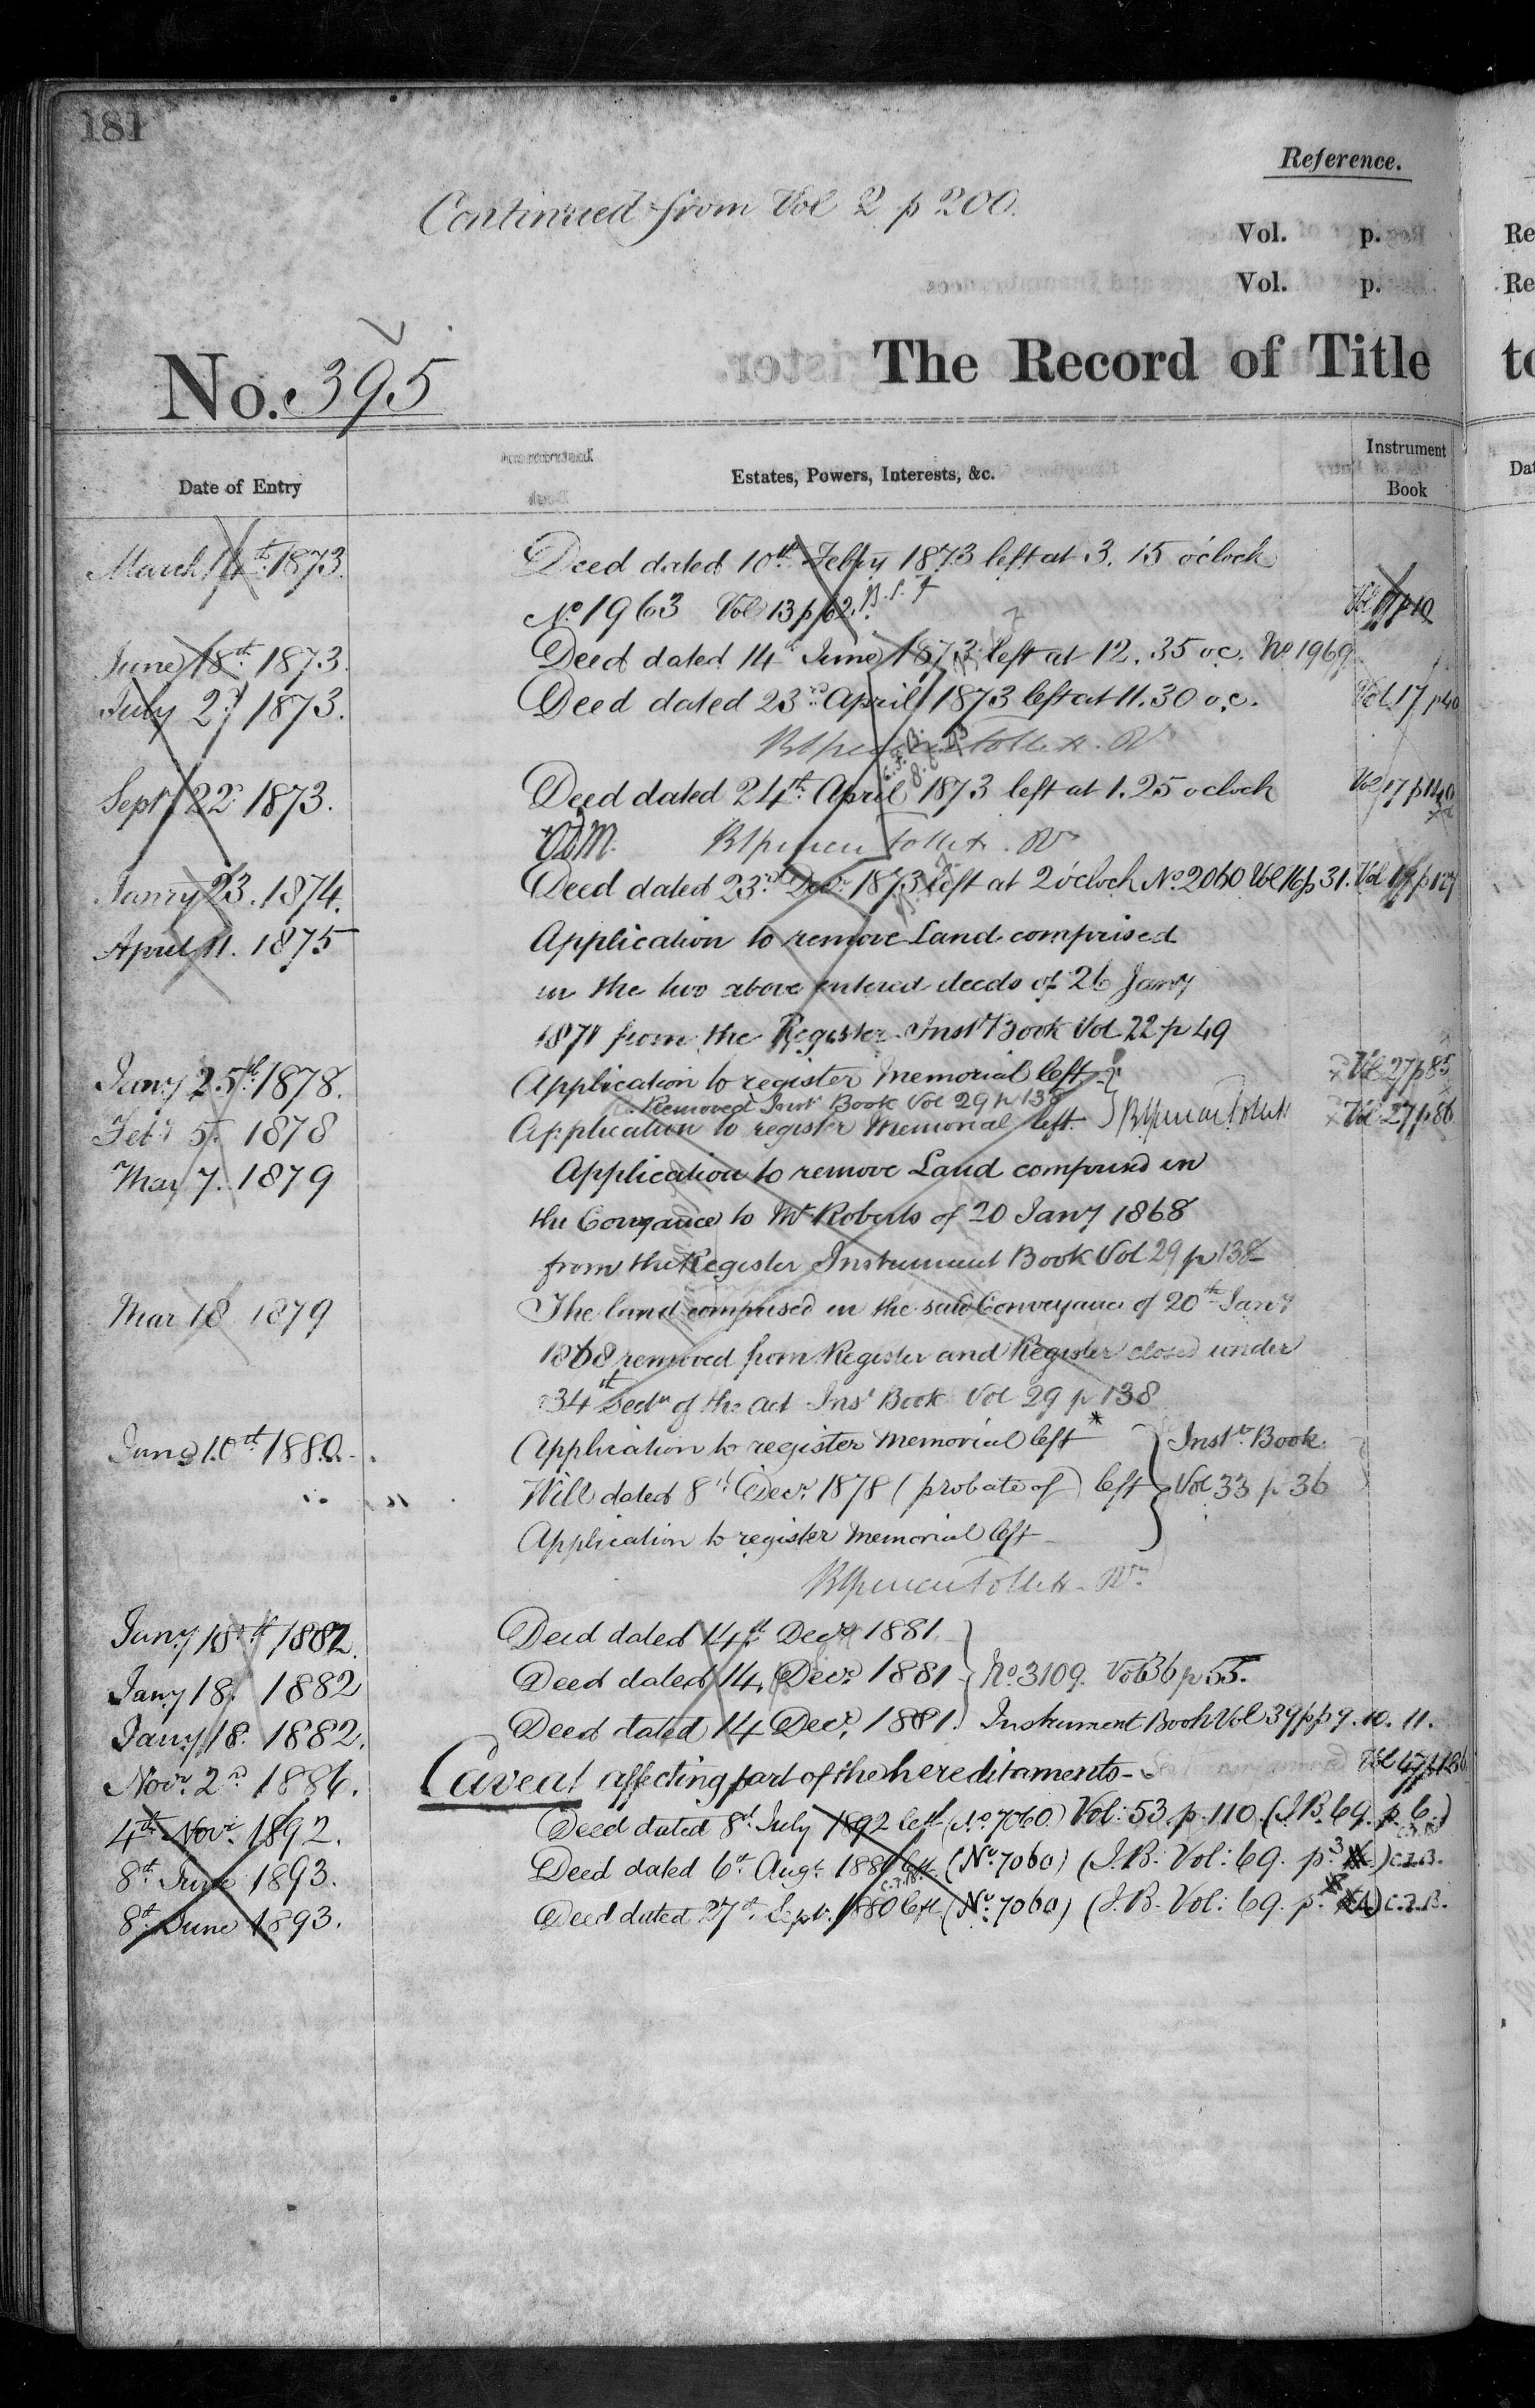 181
Reference.
Continued from Vol 2 p 200.
Vol. p.
Vol. p.
No. 395
The Record of Title
Date of Entry
Estates, Powers, Interests, &c.
Instrument
Book
March 14th 1873. Deed dated 10th Febry 1873 left at 3.15 o'clock
No. 1963 Vol 13 p 62. Vol 17 p 10
June 18th 1873. Deed dated 14th June 1873 left at 12.35 o.c. No 1969
July 2d 1873. Deed dated 23rd April 1873 left at 11.30 o.c. Vol. 17 p 40
Sept 22 1873. Deed dated 24th April 1873 left at 1.25 oclock Vol 17 p 140
Janry 23. 1874. Deed dated 23rd Decr 1873 left at 2 o'clock No 2060 Vol 16 p 31. Vol 19 p 127
April 11. 1875 Application to remove Land comprised
in the two above entered deeds of 26 Jany
1871 from the Register Inst Book Vol 22 p 49
Jany 25th 1878. Application to register Memorial left Vol 27 p 85
Removed Inst Book Vol 29 p 138
Feby 5. 1878 Application to register Memorial left. Vol 27 p 86
Mar 7. 1879 Application to remove Land comprised in
the Conyance to Mr Roberts of 20 Jany 1868
from the Register Instrument Book Vol 29 p 138
Mar 18 1879 The land comprised in the said Conveyance of 20th Jany
1868 removed from Register and Register closed under
34th Sectn of the act Inst Book Vol 29 p 138
June 10th 1880. Application to register Memorial left * Instt. Book.
" " Will dated 8th Decr. 1878 (probate of) left Vol. 33 p 36
Application to register Memorial left
Jany 18th 1882. Deed dated 14th Decr 1881.
Jany 18. 1882 Deed dated 14. Decr. 1881 No. 3109. Vol 36 p 55.
Jany 18. 1882. Deed dated 14 Decr. 1881. Instrument Book Vol 39 pp 9. 10. 11.
Novr. 2d 1886. Caveat affecting part of the hereditaments
4th Novr. 1892. Deed dated 8th July 1892 left (No 7060) Vol: 53. p. 110. (I.B. 69. p. 6.)
8th June 1893. Deed dated 6th Augt. 1880 left (No. 7060) (I.B. Vol: 69. p. 3) C.F.B.
8th June 1893. Deed dated 27th Sept. 1880 left (No. 7060) (I.B. Vol: 69. p. C.F.B.
Re
Re
to
Da